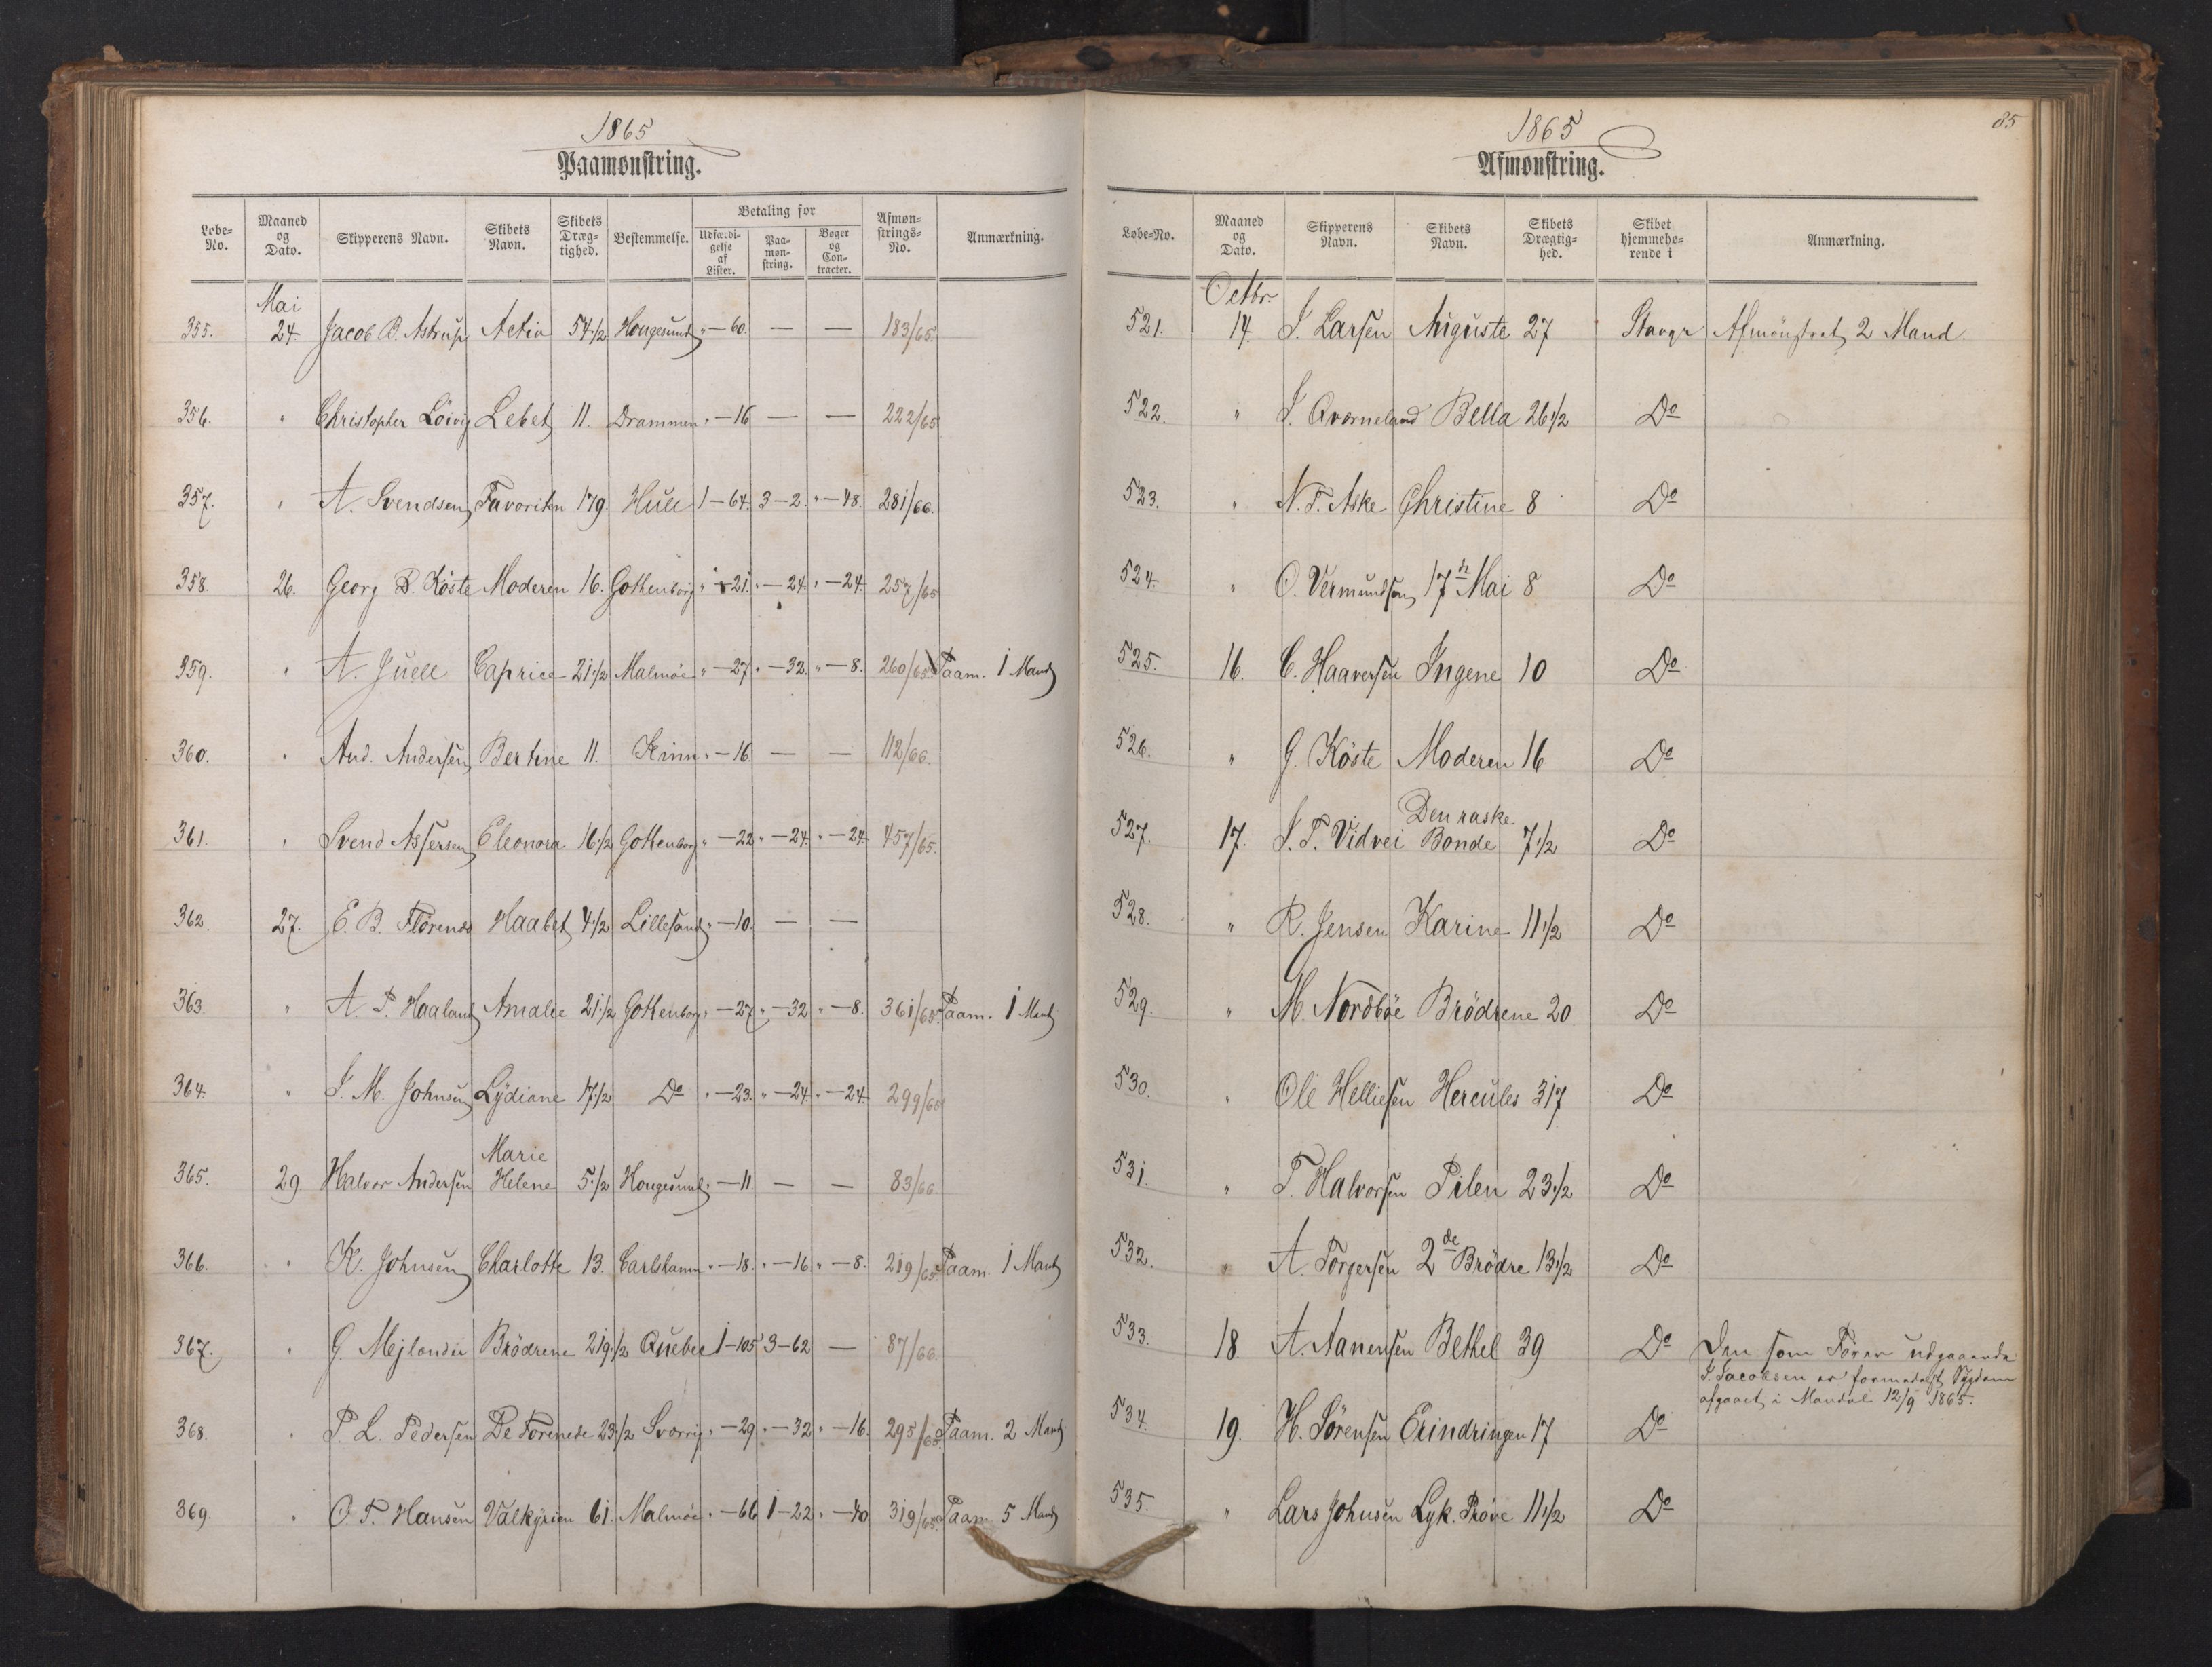 1865
Paamønstring.
Løbe-No. Maaned og Dato. Skipperens Navn. Skibets Navn. Skibets Dræg-tighed. Bestemmelse. Betaling for Udfærdi-gelse af Lister. Paa-møn-string. Bøger og Con-tracter. Afmøn-strings-No. Anmærkning.
Mai
355. 24. Jacob B. Astrup Activ 54 1/2 Hougesund " — 60. — — 183/65.
356. " Christopher Löivig Lebet 11. Drammen " — 16 — — 222/65
357. " A. Svendsen Favoriten 179. Hull 1 — 64. 3 — 2. " — 48. 281/66.
358. 26. Georg B. Köste Moderen 16. Gothenborg " — 21. " — 24. " — 24. 257/65
359. " A. Juell Caprice 21 1/2 Malmöe " — 27. " — 32. " — 8. 260/65. Paam. 1 Mand
360. " And. Andersen Bertine 11. Kinn " — 16. — — 112/66.
361. " Svend Assersen Eleonora 16 1/2 Gottenborg " — 22 " — 24. " — 24. 457/65.
362. 27. E. B. Florends Haabet 4 1/2 Lillesand " — 10. — —
363. " A. P. Haaland Amalie 21 1/2 Gottenborg " — 27 " — 32 " — 8. 361/65. Paam. 1 Mand
364. " J. M. Johnsen Lydiane 17 1/2 Do " — 23. " — 24. " — 24 299/65
Marie
365. 29. Halvor Andersen Helene 5 1/2 Hougesund " — 11. — — 83/66.
366. " K. Johnsen Charlotte 13. Carlshamn " — 18. " — 16. " — 8. 219/65. Paam. 1 Mand
367. " G. Mejlander Brödrene 219 1/2 Quebec 1 — 105 3 — 62 — 87/66.
368. " P. L. Pedersen De Forenede 23 1/2 Sverrig " — 29. " — 32 " — 16. 295/65. Paam. 2 Mand
369. " O. T. Hansen Valkyrien 61. Malmöe " — 66 1 — 22. " — 40 319/65. Paam. 5 Mand
85
1865
Afmønstring.
Løbe-No. Maaned og Dato. Skipperens Navn. Skibets Navn. Skibets Drægtig-hed. Skibet hjemmehø-rende i Anmærkning.
Octbr.
521. 14. J. Larsen Auguste 27 Stavgr Afmönstret 2 Mand.
522. " J. Qvarneland Bella 26 1/2 Do
523. " N. T. Aske Christine 8 Do
524. " O. Vermundsen 17n Mai 8 Do
525. 16. C. Haaversen Ingene 10 Do
526. " G. Köste Moderen 16 Do
Den raske
527. 17. J. T. Vidvei Bonde 7 1/2 Do
528. " R. Jensen Karine 11 1/2 Do
529. " M. Nordböe Brödrene 20 Do
530. " Ole Helliesen Hercules 317 Do
531. " T. Halvorsen Pilen 23 1/2 Do
532. " A. Torgersen 2de Brödre 13 1/2 Do
533. 18. A. Aanensen Bethel 39 Do Den som Förer udgaaende
J. Jacobsen er formedelst Sygdom
afgaaet i Mandal 12/9 1865.
534. 19. H. Sörensen Erindringen 17 Do
535. " Lars Johnsen Lyk. Pröve 11 1/2 Do